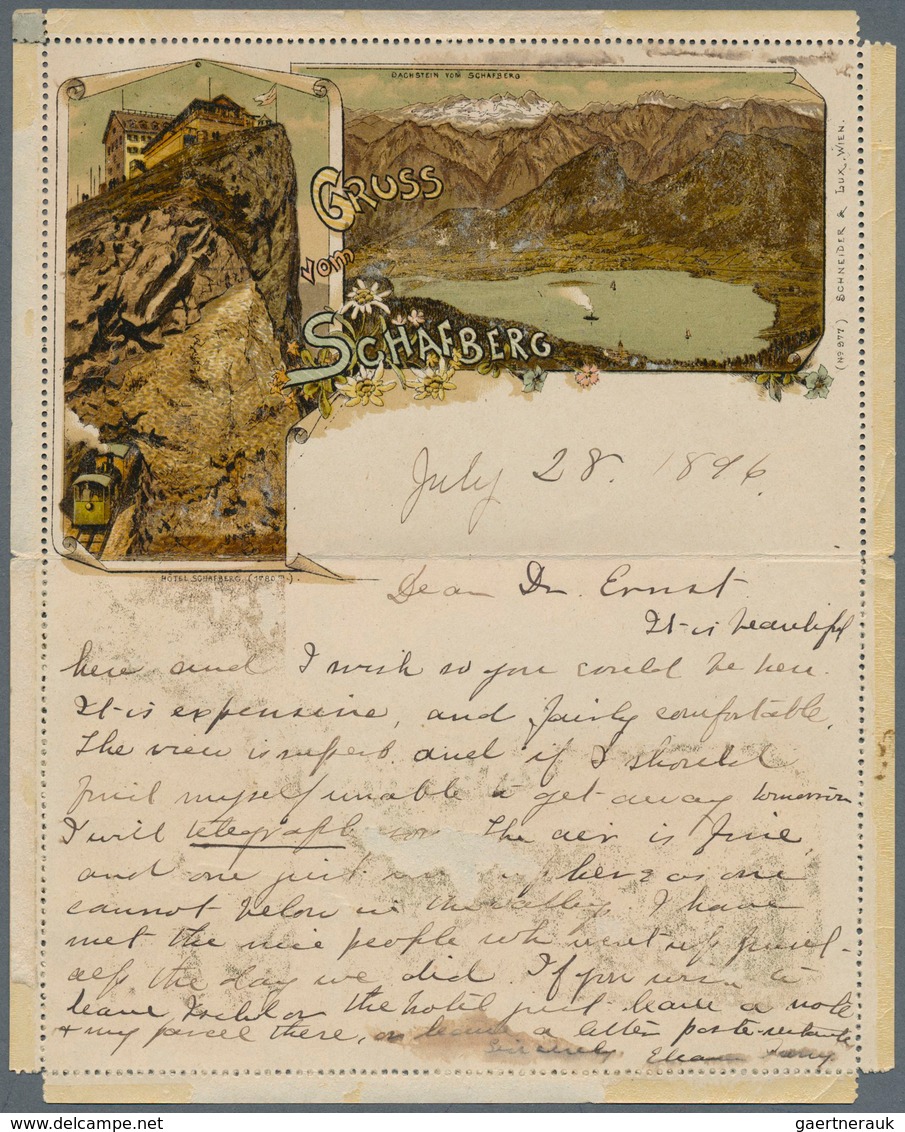 DACHSTEIN VOM SCHAFBERG
GRUSS
vom
SCHAFBERG
(No 877) SCHNEIDER & LUX, WIEN.
HÔTEL SCHAFBERG. (1780 m.)
July 28. 1896.
Dear Dr. Ernst.
It is beautiful
here and I wish so you could be here.
It is expensive, and fairly comfortable.
The view is superb and if I should
find myself unable to get away tomorrow
I will telegraph you The air is fine,
and one here as one
cannot below in the valley. I have
met the nice people who went up
the day we did. If you
leave Ischl or the hotel just leave a note
& my parcel there, or leave a letter poste-restante
Sincerely
gaertnerauk